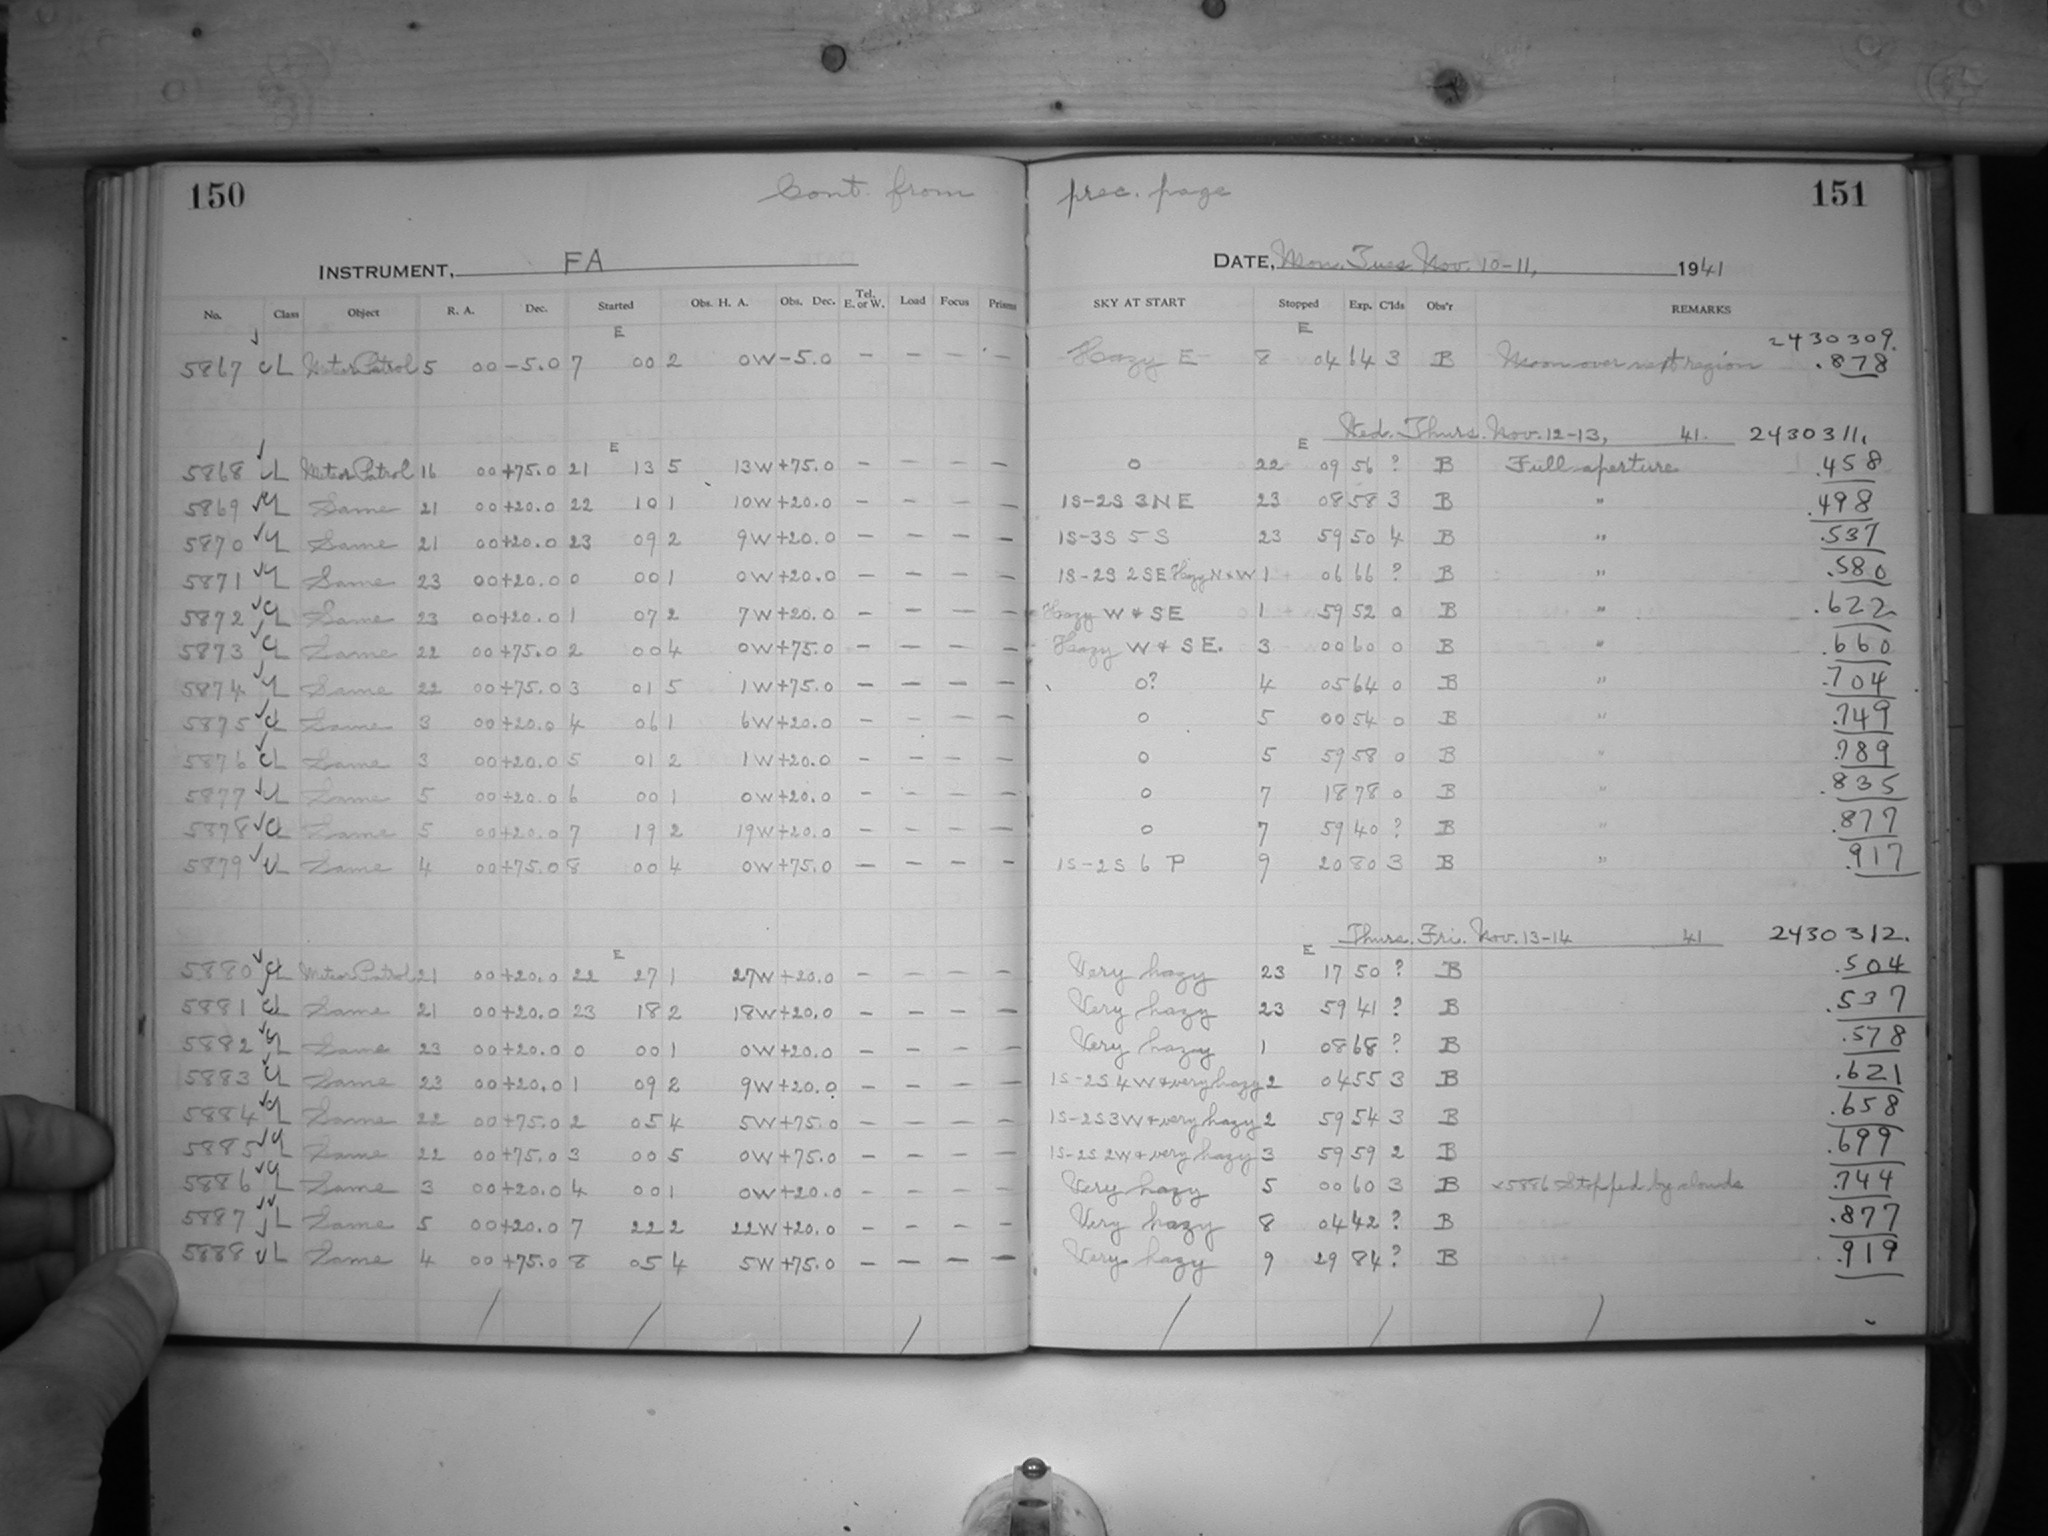 150 Cont. from prec. page 151
INSTRUMENT, FA DATE, Mon. Tues Nov. 10-11, 1941
No. Class Object R. A. Dec. Started Obs. H. A. Obs. Dec. Tel. E. or W. Load Focus Prisms SKY AT START Stopped Exp. C'lds Obs'r REMARKS
E E 2430309.
5867 CL Meteor Patrol 5 00 -5.0 7 00 2 0W -5.0 — — — — Hazy E 8 04 64 3 B Moon over next region .878
Wed. Thurs. Nov. 12-13, 41. 2430311.
E E
5868 CL Meteor Patrol 16 00 +75.0 21 13 5 13W +75.0 — — — — 0 22 09 56 ? B Full aperture .458
5869 CL Same 21 00 +20.0 22 10 1 10W +20.0 — — — — 1S-2S 3NE 23 08 58 3 B " .498
5870 CL Same 21 00 +20.0 23 09 2 9W +20.0 — — — — 1S-3S 5 S 23 59 50 4 B " .537
5871 CL Same 23 00 +20.0 0 00 1 0W +20.0 — — — — 1S-2S 2SE Hazy N & W 1 06 66 ? B " .580
5872 CL Same 23 00 +20.0 1 07 2 7W +20.0 — — — — Hazy W & SE 1 59 52 0 B " .622
5873 CL Same 22 00 +75.0 2 00 4 0W +75.0 — — — — Hazy W & SE. 3 00 60 0 B " .660
5874 CL Same 22 00 +75.0 3 01 5 1W +75.0 — — — — 0? 4 05 64 0 B " .704
5875 CL Same 3 00 +20.0 4 06 1 6W +20.0 — — — — 0 5 00 54 0 B " .749
5876 CL Same 3 00 +20.0 5 01 2 1W +20.0 — — — — 0 5 59 58 0 B " .789
5877 CL Same 5 00 +20.0 6 00 1 0W +20.0 — — — — 0 7 18 78 0 B " .835
5878 CL Same 5 00 +20.0 7 19 2 19W +20.0 — — — — 0 7 59 40 ? B " .877
5879 CL Same 4 00 +75.0 8 00 4 0W +75.0 — — — — 1S-2S 6 P 9 20 80 3 B " .917
Thurs. Fri. Nov. 13-14 41 2430312.
E E
5880 CL Meteor Patrol 21 00 +20.0 22 27 1 27W +20.0 — — — — Very hazy 23 17 50 ? B .504
5881 CL Same 21 00 +20.0 23 18 2 18W +20.0 — — — — Very hazy 23 59 41 ? B .537
5882 CL Same 23 00 +20.0 0 00 1 0W +20.0 — — — — Very hazy 1 08 68 ? B .578
5883 CL Same 23 00 +20.0 1 09 2 9W +20.0 — — — — 1S-2S 4W & very hazy 2 04 55 3 B .621
5884 CL Same 22 00 +75.0 2 05 4 5W +75.0 — — — — 1S-2S 3W & very hazy 2 59 54 3 B .658
5885 CL Same 22 00 +75.0 3 00 5 0W +75.0 — — — — 1S-2S 2W & very hazy 3 59 59 2 B .699
5886 CL Same 3 00 +20.0 4 00 1 0W +20.0 — — — — Very hazy 5 00 60 3 B x5886 Stopped by clouds .744
5887 L Same 5 00 +20.0 7 22 2 22W +20.0 — — — — Very hazy 8 04 42 ? B .877
5888 L Same 4 00 +75.0 8 05 4 5W +75.0 — — — — Very hazy 9 29 84 ? B .919